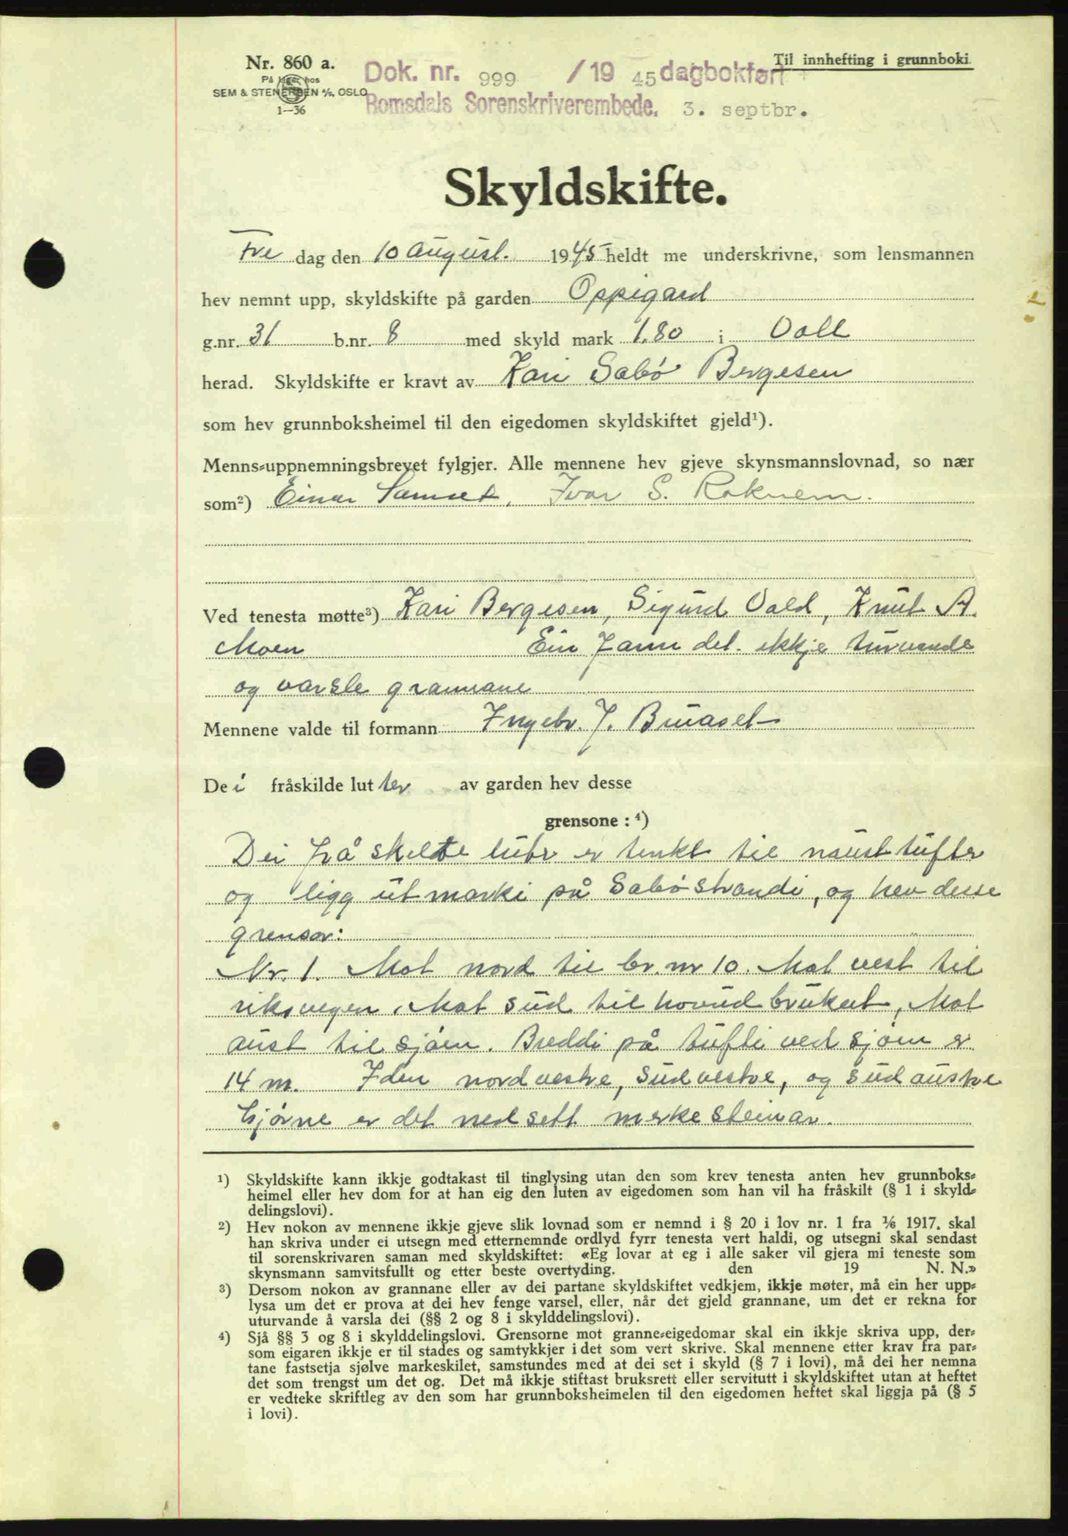 Nr. 860 a.
På lager hos
SEM & STENERSEN A/S, OSLO
1—36
Til innhefting i grunnboki.
Dok. nr. 999 /19 45 dagbokført
Romsdals Sorenskriverembede. 3. septbr.
Skyldskifte.
Fre dag den 10 August. 1945 heldt me underskrivne, som lensmannen
hev nemnt upp, skyldskifte på garden Oppigard
g.nr. 31 b.nr. 8 med skyld mark 1.80 i Voll
herad. Skyldskifte er kravt av Kari Sabø Bergesen
som hev grunnboksheimel til den eigedomen skyldskiftet gjeld¹).
Menns-uppnemningsbrevet fylgjer. Alle mennene hev gjeve skynsmannslovnad, so nær
som²) Einar Samset, Ivar S. Roknem.
Ved tenesta møtte³) Kari Bergesen, Sigurd Vold, Knut A.
Moen Ein fann det ikkje turvande
og varsle grannane
Mennene valde til formann Ingebr. J. Bruaset
Dei fråskilde luter av garden hev desse
grensone : ⁴)
Dei frå skelde lutr er tenkt til naust tufter
og ligg ut marki på Sabøstrandi, og hev desse
grensor:
Nr. 1. Mot nord til br. nr 10. Mot vest til
riksvegen. Mot sud til hovudbruket, Mot
aust til sjøen. Breddi på tufti ved sjøen er
14 m. I den nordvestre, sudvestre, og sudaustre
hjørne er det nedsett merkesteinar.
¹) Skyldskifte kann ikkje godtakast til tinglysing utan den som krev tenesta anten hev grunnboks-
heimel eller hev dom for at han eig den luten av eigedomen som han vil ha fråskilt (§ 1 i skyld-
delingslovi).
²) Hev nokon av mennene ikkje gjeve slik lovnad som er nemnd i § 20 i lov nr. 1 fra 1/6 1917, skal
han skriva under ei utsegn med etternemnde ordlyd fyrr tenesta vert haldi, og utsegni skal sendast
til sorenskrivaren saman med skyldskiftet: «Eg lovar at eg i alle saker vil gjera mi teneste som
skynsmann samvitsfullt og etter beste overtyding. den 19 N. N.»
³) Dersom nokon av grannane eller av dei partane skyldskiftet vedkjem, ikkje møter, må ein her upp-
lysa um det er prova at dei hev fenge varsel, eller, når det gjeld grannane, um det er rekna for
uturvande å varsla dei (§§ 2 og 8 i skylddelingslovi).
⁴) Sjå §§ 3 og 8 i skylddelingslovi. Grensorne mot granne-eigedomar skal ein ikkje skriva upp, der-
som eigaren ikkje er til stades og samtykkjer i det som vert skrive. Skal mennene etter krav fra par-
tane fastsetja sjølve markeskilet, samstundes med at dei set i skyld (§ 7 i lovi), må dei her nemna
det som trengst um det og. Det må ikkje stiftast bruksrett eller servitutt i skyldskiftet utan at heftet
er vedteke skriftleg av den som har grunnboksheimelen til den eigedomen heftet skal liggja på (§ 5
i lovi).